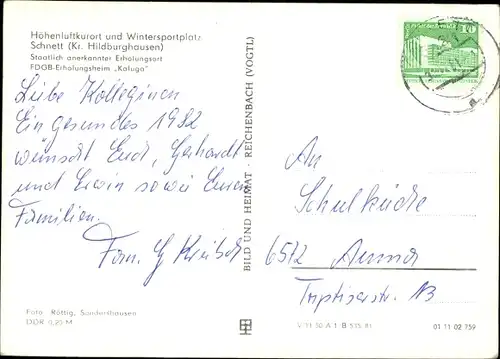 Höhenluftkurort und Wintersportplatz
Schnett (Kr. Hildburghausen)
Staatlich anerkannter Erholungsort
FDGB-Erholungsheim „Kaluga"
Liebe Kolleginen
Ein gesundes 1982
wünscht Euch, Gerhardt
und Erwin sowie Euren
Familien.
Fam. G
Foto: Röttig, Sondershausen
DDR 0,20 M
BILD UND HEIMAT · REICHENBACH (VOGTL)
10
An
Schulküche
6572 Auma
Triptiserstr. 13
V 11 50 A 1 B 515/81
01 11 02 759